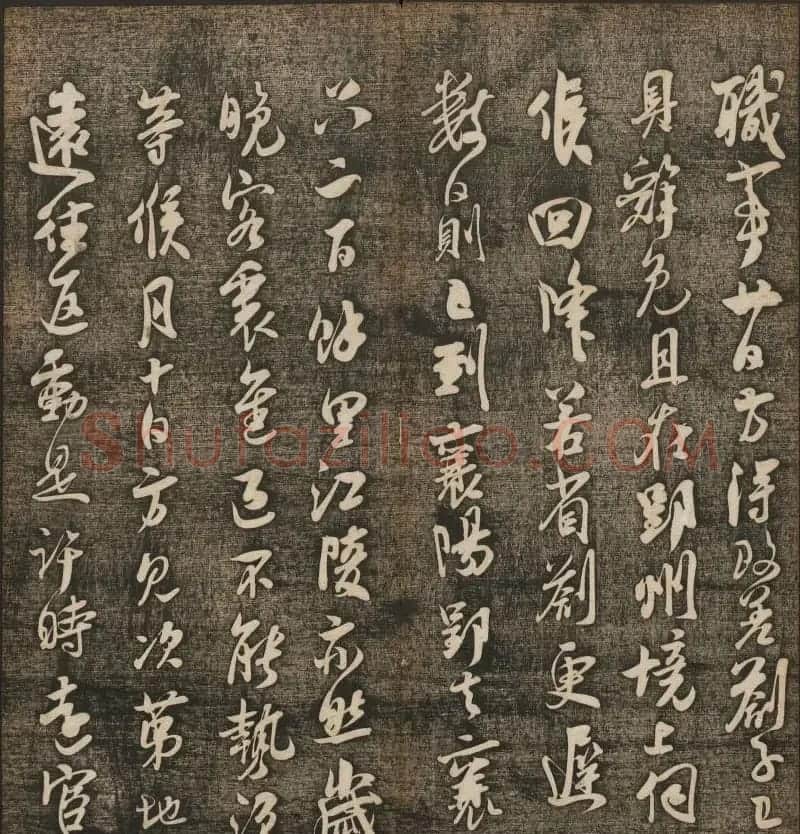 職事廿日方得改差劄子已
具辭免且在郢州境上伺
候回降若省劄更遲
數日則已到襄陽郢去襄
只二百餘里江陵亦然歲
晚客裏進退不能勢須
等候月十日方見次第地
遠往返動是許時遠官
Shufaziliao.COM